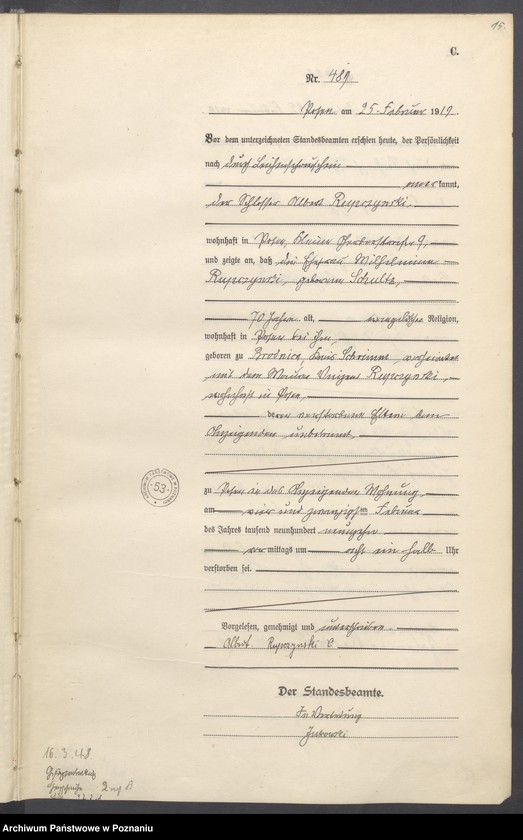 15.
C.
Nr. 489
Posen am 25. Februar 1919.
Vor dem unterzeichneten Standesbeamten erschien heute, der Persönlichkeit
nach durch Leichenschauschein
anerkannt,
der Schlosser Albert Rupczynski,
wohnhaft in Posen, Kleine Gerberstraße 9,
und zeigte an, daß die Ehefrau Wilhelmine
Rupczynski, geborene Schultz,
70 Jahre alt, evangelischer Religion,
wohnhaft in Posen bei ihm,
geboren zu Brodnica, Kreis Schrimm, verheiratet
mit dem Maurer Vinzens Rupczynski,
wohnhaft in Posen,
deren verstorbene Eltern dem
Anzeigenden unbekannt,
zu Posen in des Anzeigenden Wohnung
am vier und zwanzigsten Februar
des Jahres tausend neunhundert neunzehn
vormittags um acht ein halb Uhr
verstorben sei.
Vorgelesen, genehmigt und unterschrieben
Albert Rupczynski
Der Standesbeamte.
In Vertretung
53
16. 3. 48.
Archiwum Państwowe w Poznaniu